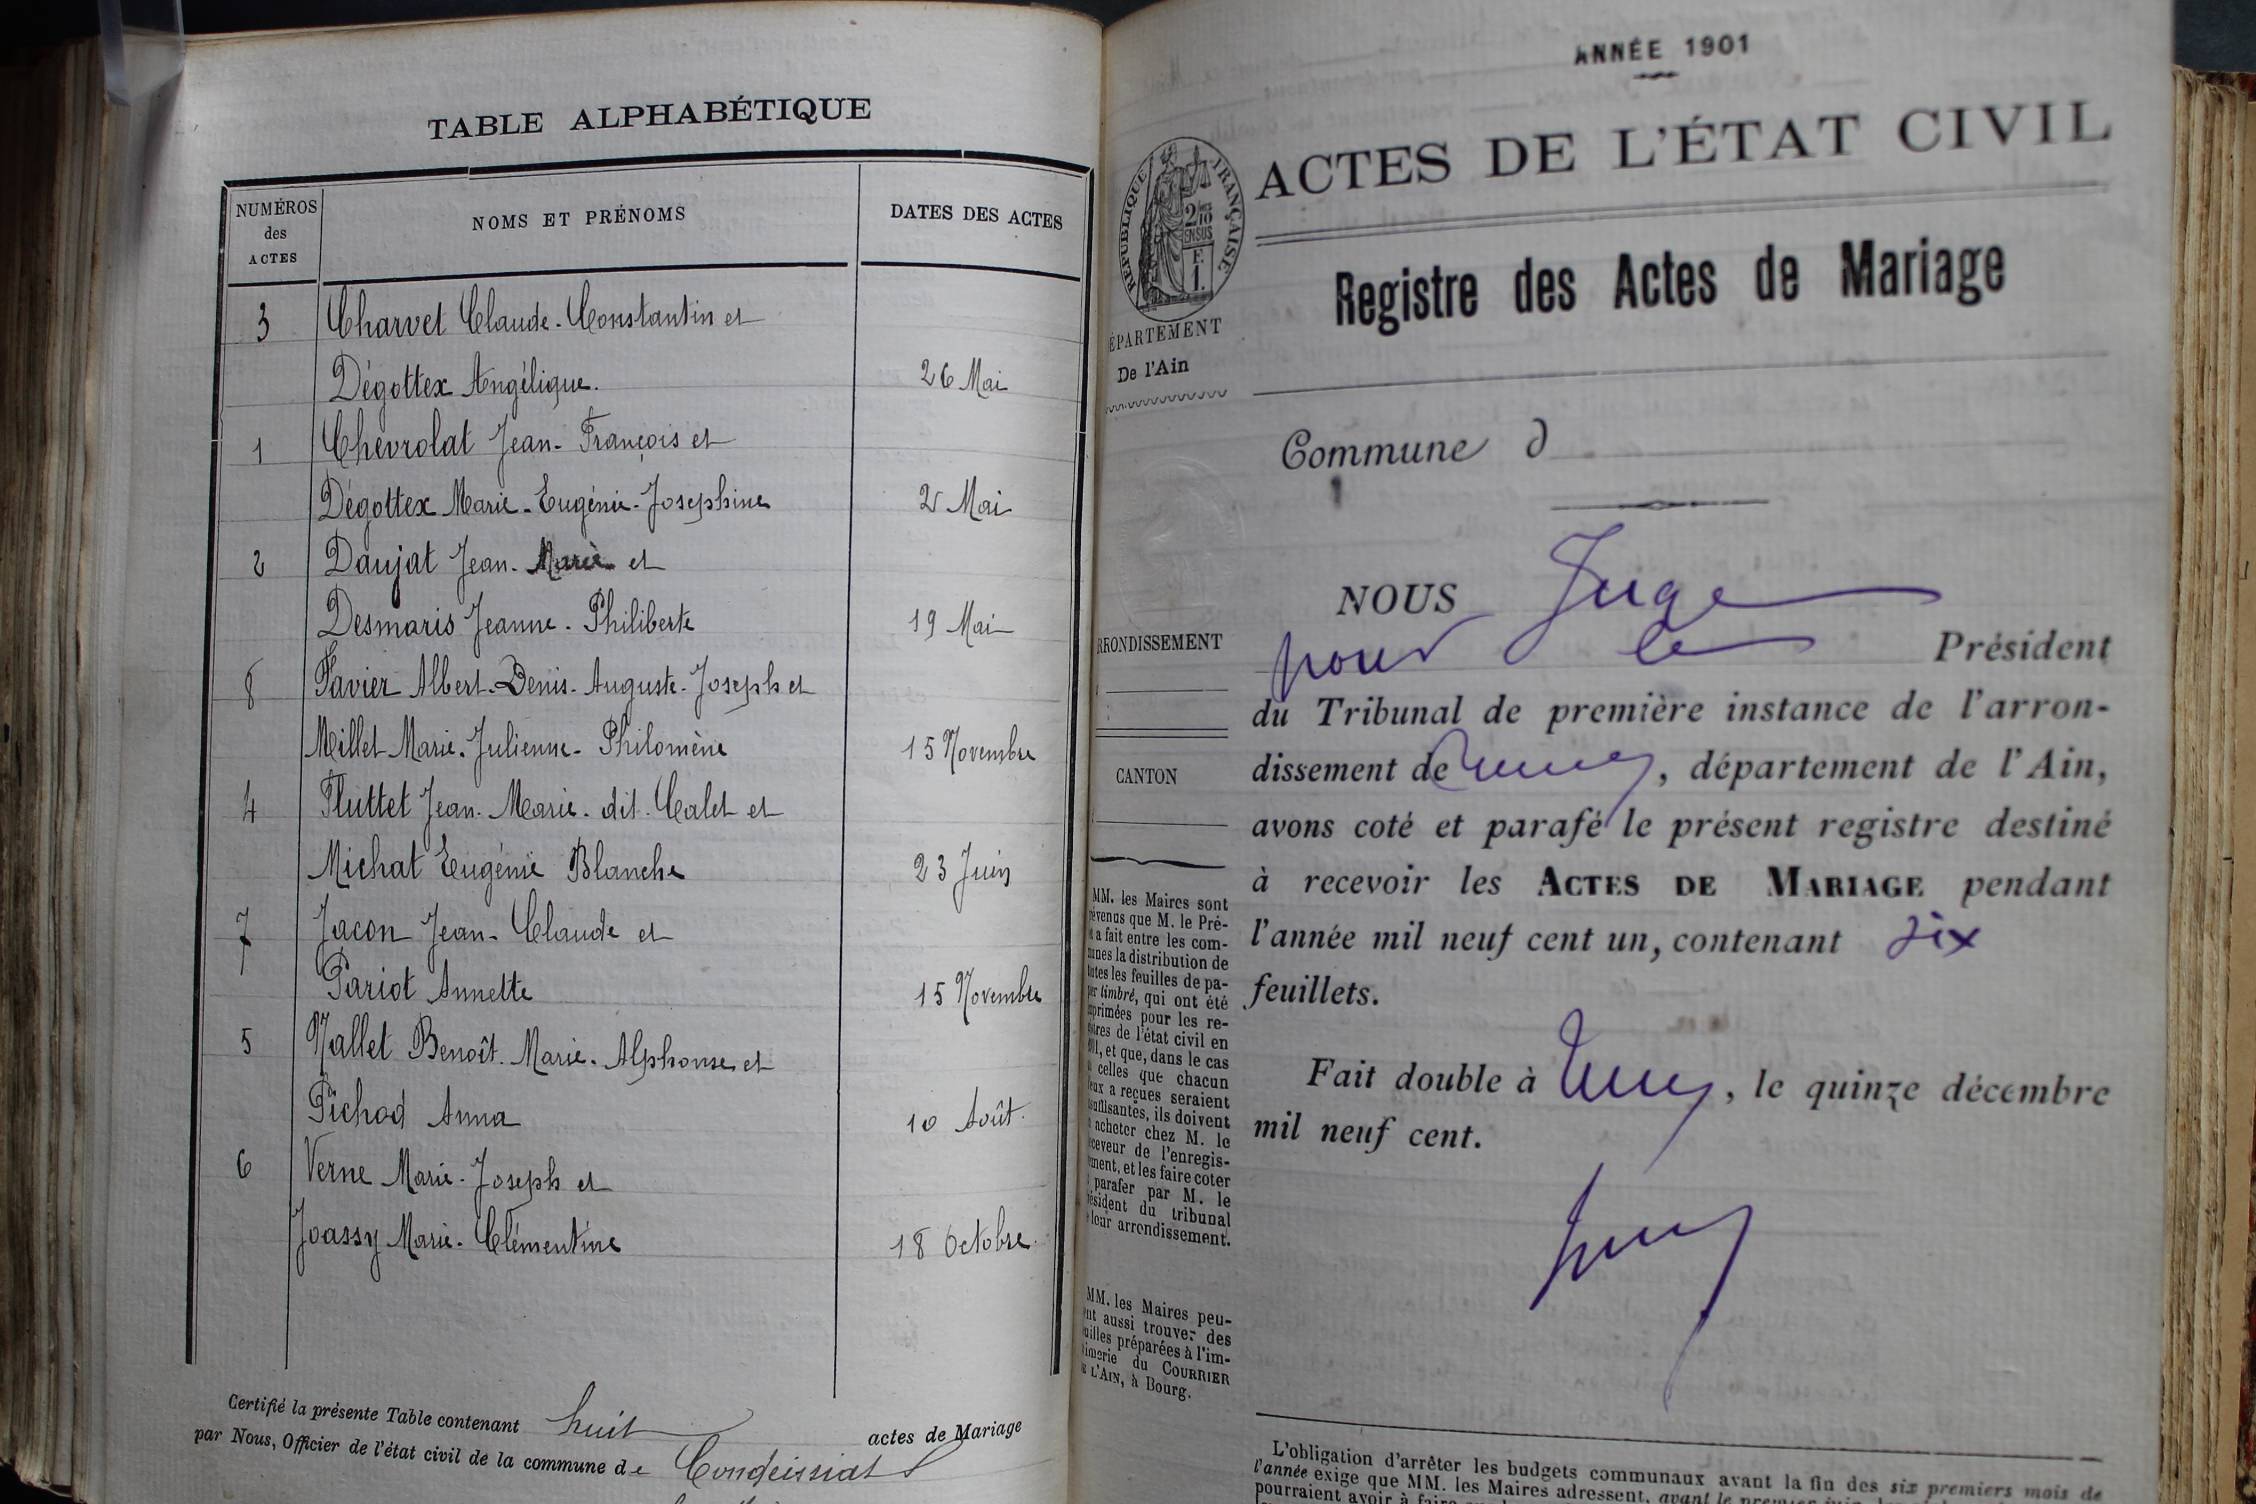 TABLE ALPHABÉTIQUE
NUMÉROS des ACTES NOMS ET PRÉNOMS DATES DES ACTES
3 Charvet Claude-Constantin et
Dégottex Angélique. 26 Mai
1 Chevrolat Jean-François et
Dégottex Marie-Eugénie-Josephine 2 Mai
2 Daujat Jean-Marie et
Desmaris Jeanne-Philiberte 19 Mai
8 Favier Albert-Denis-Auguste-Joseph et
Millet Marie-Julienne-Philomène 15 Novembre
4 Fluttet Jean-Marie-dit-Calet et
Michat Eugénie Blanche 23 Juin
7 Jacon Jean-Claude et
Pariot Annette 15 Novembre
5 Nallet Benoît-Marie-Alphonse et
Pichod Anna 10 Août.
6 Verne Marie-Joseph et
Joassy Marie-Clémentine 18 Octobre
Certifié la présente Table contenant huit actes de Mariage
par Nous, Officier de l'état civil de la commune de Condeissiat
ANNÉE 1901
ACTES DE L'ÉTAT CIVIL
RÉPUBLIQUE FRANÇAISE
2/10
EN SUS
F.
1.
ÉPARTEMENT
De l'Ain
Registre des Actes de Mariage
Commune d
1
RRONDISSEMENT
CANTON
MM. les Maires sont
évenus que M. le Pré-
a fait entre les com-
unes la distribution de
utes les feuilles de pa-
er timbré, qui ont été
primées pour les re-
tres de l'état civil en
01, et que, dans le cas
celles que chacun
eux a reçues seraient
suffisantes, ils doivent
acheter chez M. le
eceveur de l'enregis-
ment, et les faire coter
parafer par M. le
ésident du tribunal
leur arrondissement.
MM. les Maires peu-
nt aussi trouver des
uilles préparées à l'im-
imerie du COURRIER
E L'AIN, à Bourg.
NOUS Juge
pour le Président
du Tribunal de première instance de l'arron-
dissement de , département de l'Ain,
avons coté et parafé le présent registre destiné
à recevoir les ACTES DE MARIAGE pendant
l'année mil neuf cent un, contenant six
feuillets.
Fait double à , le quinze décembre
mil neuf cent.
L'obligation d'arrêter les budgets communaux avant la fin des six premiers mois de
l'année exige que MM. les Maires adressent, avant le premier juin
pourraient avoir à faire